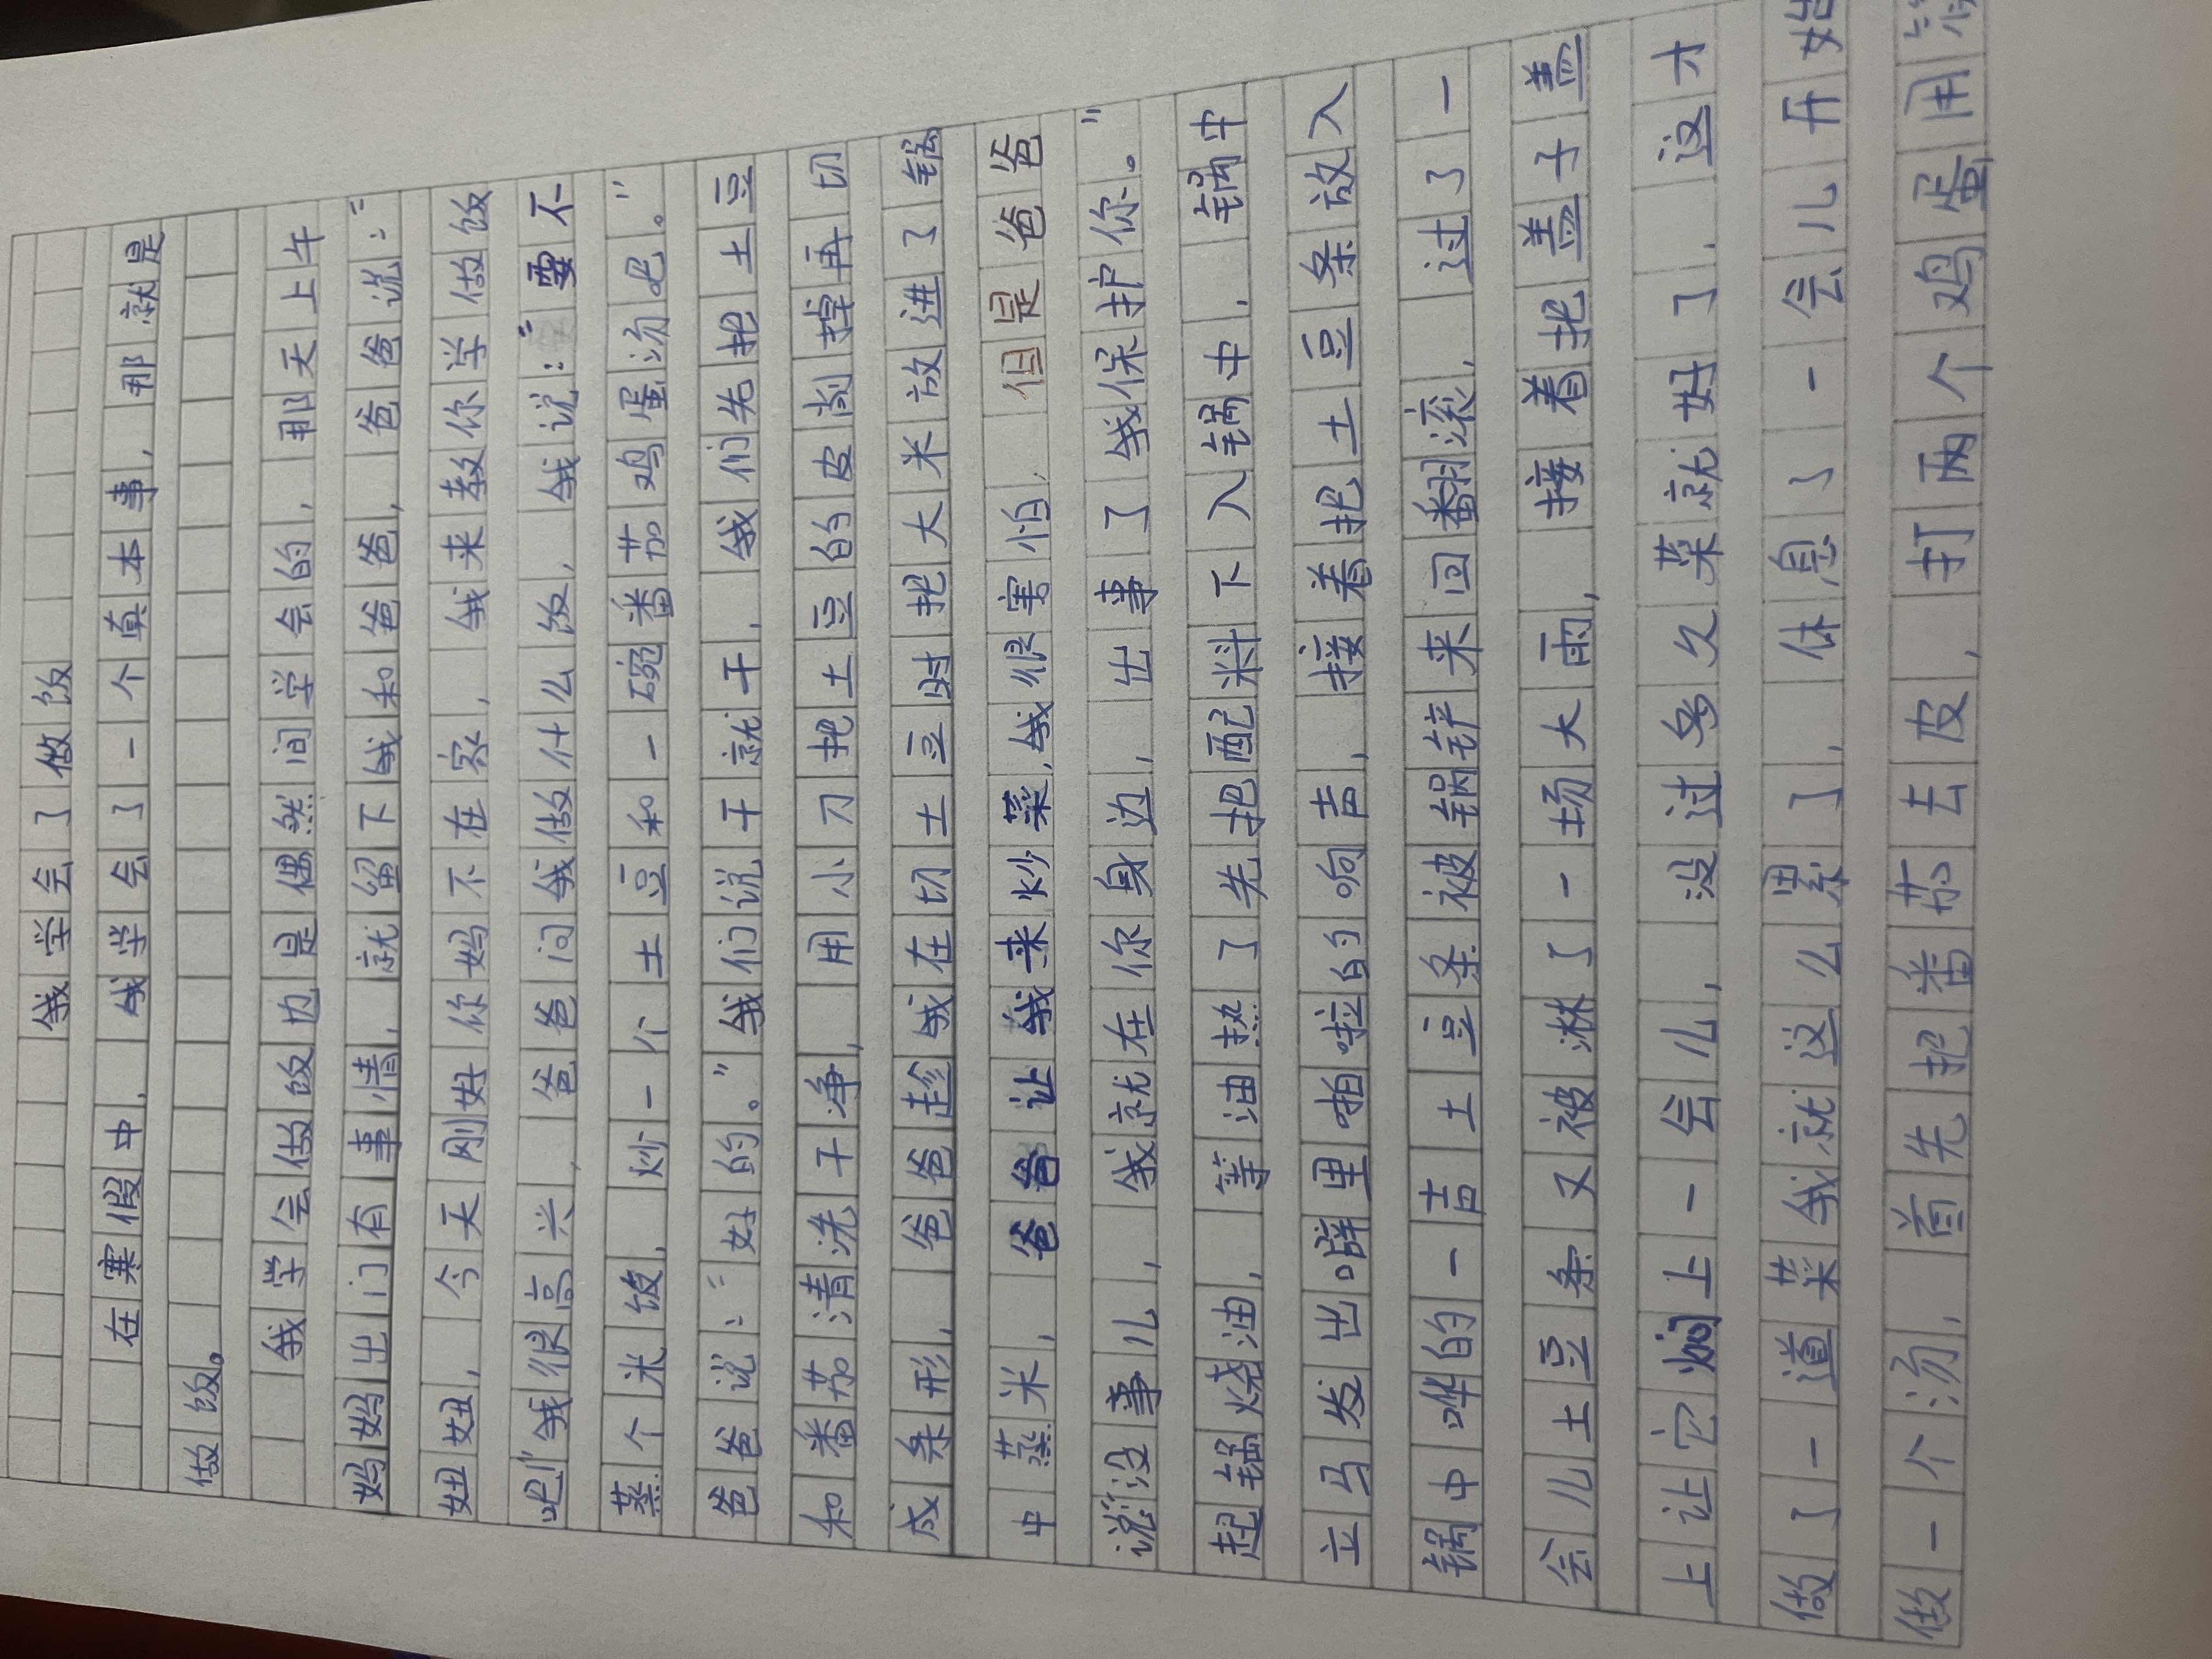 我学会了做饭
在寒假中，我学会了一个真本事，那就是
做饭。
我学会做饭也是偶然间学会的，那天上午
妈妈出门有事情，就留下我和爸爸，爸爸说：“
妞妞，今天刚好你妈不在家，我来教你学做饭
吧！”我很高兴，爸爸问我做什么饭，我说：“要不
蒸个米饭，炒一个土豆和一碗番茄鸡蛋汤吧。”
爸爸说：“好的。”我们说干就干，我们先把土豆
和番茄清洗干净，用小刀把土豆的皮削掉再切
成条形，爸爸趁我在切土豆时把大米放进了锅
中蒸米，爸爸让我来炒菜，我很害怕，但是爸爸
说：“没事儿，我就在你身边，出事了我保护你。”
起锅烧油，等油热了先把配料下入锅中，锅中
立马发出噼里啪啦的响声，接着把土豆条放入
锅中哗的一声土豆条被锅铲来回翻滚，过了一
会儿土豆条又被淋了一场大雨，接着把盖子盖
上让它焖上一会儿，没过多久菜就好了，这才
做了一道菜我就这么累了，休息了一会儿开始
做一个汤，首先把番茄去皮，打两个鸡蛋用